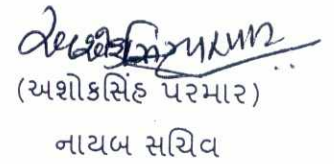 (અશોકસિંહ પરમાર)
નાયબ સચિવ